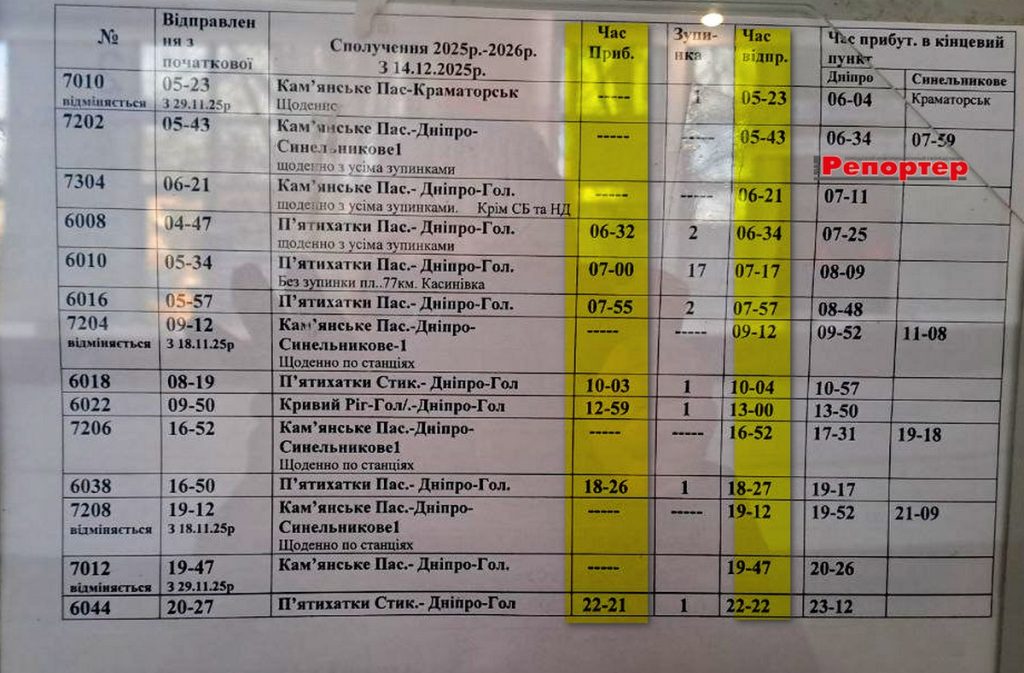 № Відправлен ня з початкової Сполучення 2025р.-2026р. З 14.12.2025р. Час Приб. Зупи- нка Час відпр. Час прибут. в кінцевий пункт
Дніпро Синельникове
7010 05-23 Кам’янське Пас-Краматорськ ----- 1 05-23 06-04 Краматорськ
відміняється З 29.11.25р Щоденно
7202 05-43 Кам’янське Пас.-Дніпро- ----- ----- 05-43 06-34 07-59
Синельникове1
щоденно з усіма зупинками
Репортер
7304 06-21 Кам’янське Пас.- Дніпро-Гол. ----- ----- 06-21 07-11
щоденно з усіма зупинками. Крім СБ та НД
6008 04-47 П’ятихатки Пас.- Дніпро-Гол. 06-32 2 06-34 07-25
щоденно з усіма зупинками
6010 05-34 П’ятихатки Пас.- Дніпро-Гол. 07-00 17 07-17 08-09
Без зупинки пл..77км. Касинівка
6016 05-57 П’ятихатки Пас.- Дніпро-Гол. 07-55 2 07-57 08-48
7204 09-12 Кам’янське Пас.-Дніпро- ----- ----- 09-12 09-52 11-08
відміняється З 18.11.25р Синельникове-1
Щоденно по станціях
6018 08-19 П’ятихатки Стик.- Дніпро-Гол 10-03 1 10-04 10-57
6022 09-50 Кривий Ріг-Гол/.-Дніпро-Гол 12-59 1 13-00 13-50
7206 16-52 Кам’янське Пас.-Дніпро- ----- ----- 16-52 17-31 19-18
Синельникове1
Щоденно по станціях
6038 16-50 П’ятихатки Пас.- Дніпро-Гол. 18-26 1 18-27 19-17
7208 19-12 Кам’янське Пас.-Дніпро- ----- ----- 19-12 19-52 21-09
відміняється З 18.11.25р Синельникове1
Щоденно по станціях
7012 19-47 Кам’янське Пас.- Дніпро-Гол. ----- 19-47 20-26
відміняється З 29.11.25р
6044 20-27 П’ятихатки Стик.- Дніпро-Гол 22-21 1 22-22 23-12